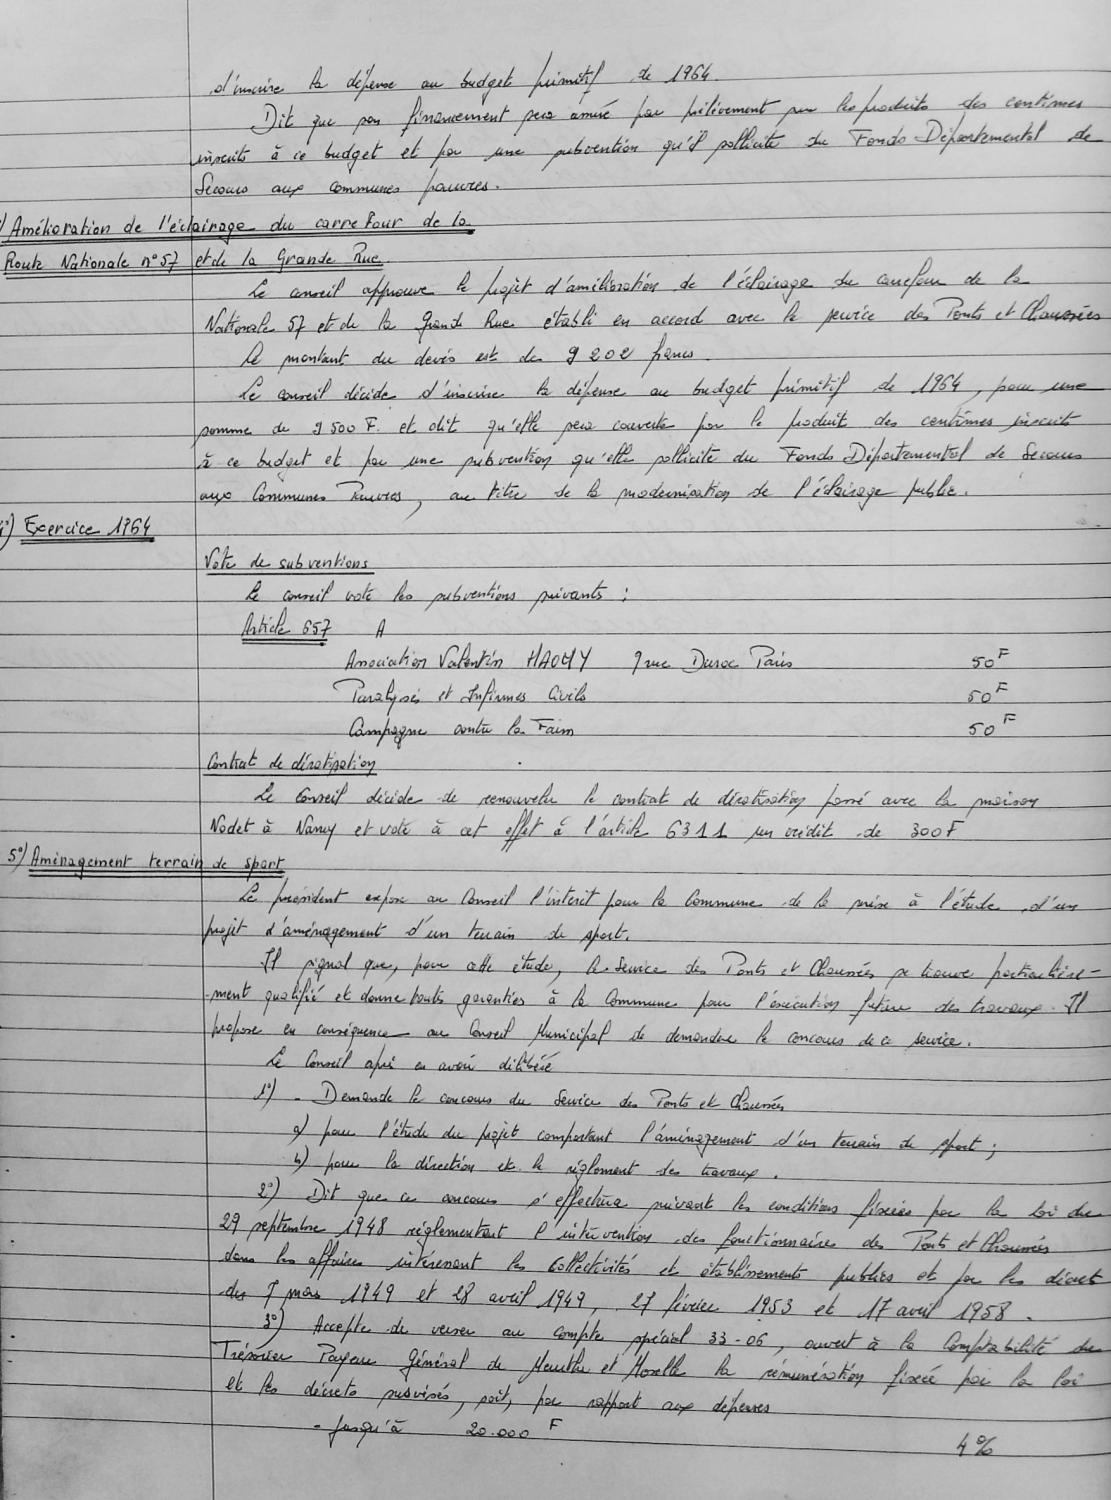 d'inscrire la dépense au budget primitif de 1964.
Dit que son financement sera assuré par prélèvement sur les produits des centimes
inscrits à ce budget et par une subvention qu'il sollicite du Fonds Départemental de
Secours aux communes pauvres.
) Amélioration de l'éclairage du carrefour de la
Route Nationale n°57 et de la Grande Rue
Le conseil approuve le projet d'amélioration de l'éclairage du carrefour de la
Nationale 57 et de la Grande Rue établi en accord avec le service des Ponts et Chaussées
Le montant du devis est de 9 202 francs.
Le conseil décide d'inscrire la dépense au budget primitif de 1964, pour une
somme de 9 500 F. et dit qu'elle sera couverte par le produit des centimes inscrits
à ce budget et par une subvention qu'elle sollicite du Fonds Départemental de Secours
aux Communes Pauvres, au titre de la modernisation de l'éclairage public.
4°) Exercice 1964
Vote de subventions
Le conseil vote les subventions suivants :
Article 657 A
Association Valentin HAOUY 9 rue Duroc Paris 50 F
Paralysés et Infirmes Civils 50 F
Campagne contre la Faim 50 F
Contrat de dératisation
Le Conseil décide de renouveler le contrat de dératisation passé avec la maison
Nodet à Nancy et vote à cet effet à l'article 6311 un crédit de 300 F
5°) Aménagement terrain de sport
Le président expose au Conseil l'intérêt pour la Commune de la mise à l'étude d'un
projet d'aménagement d'un terrain de sport.
Il signal que, pour cette étude, le Service des Ponts et Chaussées se trouve particulière-
-ment qualifié et donne touts garanties à la Commune pour l'exécution future des travaux. Il
propose en conséquence au Conseil Municipal de demander le concours de ce service.
Le Conseil après en avoir délibéré
1°) - Demande le concours du Service des Ponts et Chaussées
a) pour l'étude du projet comportant l'aménagement d'un terrain de sport ;
b) pour la direction et le règlement des travaux.
2°) Dit que ce concours s'effectura suivant les conditions fixées par la loi du
29 septembre 1948 réglementant l'intervention des fonctionnaires des Ponts et Chaussées
dans les affaires intéressant les Collectivités et établissements publics et par les décret
des 7 mars 1949 et 28 avril 1949, 27 février 1953 et 17 avril 1958.
3°) Accepte de verser au compte spécial 33-06, ouvert à la Comptabilité du
Trésorier Payeur Général de Meurthe et Moselle la rémunération fixée par la loi
et les décrets susvisés, soit, par rapport aux dépenses
- Jusqu'à 20.000 F 4 %